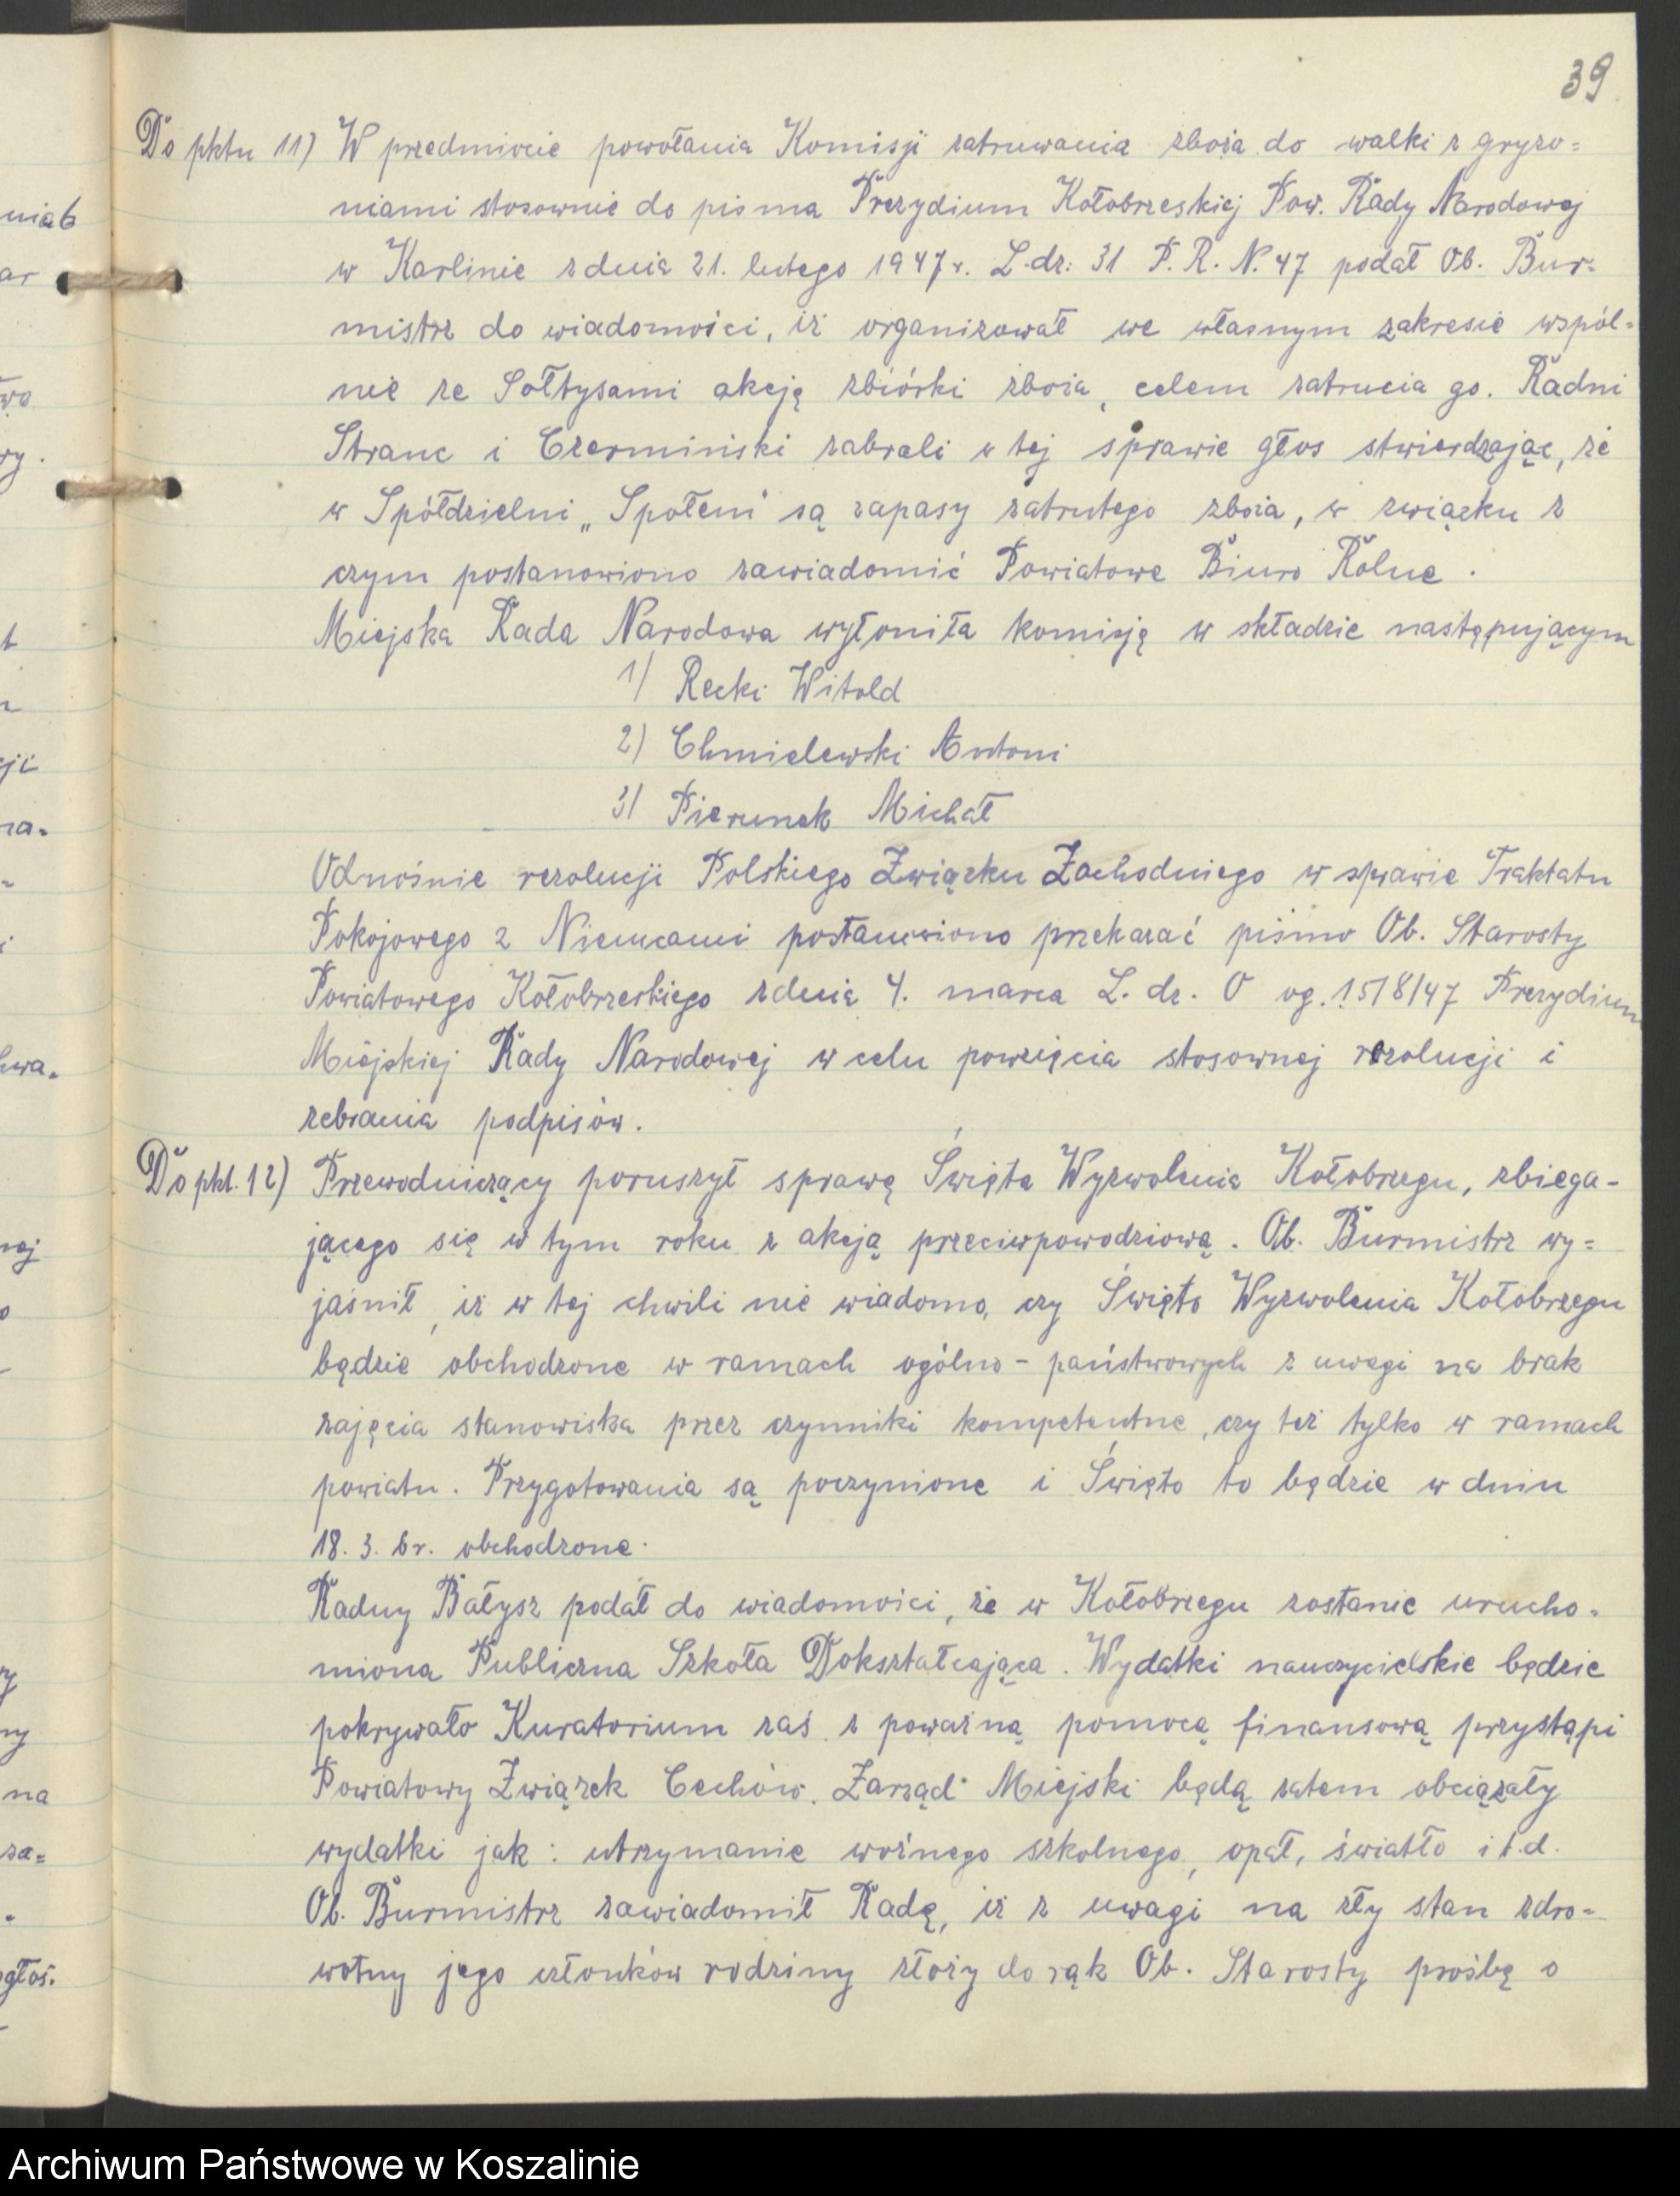 39
Do pktu 11) W przedmiocie powołania Komisji zatruwania zboża do walki z gryzo=
niami stosownie do pisma Prezydium Kołobrzeskiej Pow. Rady Narodowej
w Karlinie z dnia 21. lutego 1947 r. L.dz: 31 P.R.N. 47 podał Ob. Bur=
mistrz do wiadomości, iż organizował we własnym zakresie wspól=
nie ze Sołtysami akcję zbiórki zboża, celem zatrucia go. Radni
Stranc i Czermiński zabrali w tej sprawie głos stwierdzając, że
w Spółdzielni „Społem" są zapasy zatrutego zboża, w związku z
czym postanowiono zawiadomić Powiatowe Biuro Rolne.
Miejska Rada Narodowa wyłoniła komisję w składzie następującym
1/ Recki Witold
2) Chmielewski Antoni
3/ Pierunek Michał
Odnośnie rezolucji Polskiego Związku Zachodniego w sprawie Traktatu
Pokojowego z Niemcami postanowiono przekazać pismo Ob. Starosty
Powiatowego Kołobrzeskiego z dnia 4. marca L. dz. O og. 15/8/47 Prezydium
Miejskiej Rady Narodowej w celu powzięcia stosownej rezolucji i
zebrania podpisów.
Do pkt. 12) Przewodniczący poruszył sprawę Święta Wyzwolenia Kołobrzegu, zbiega-
jącego się w tym roku z akcją przeciwpowodziową. Ob. Burmistrz wy=
jaśnił, iż w tej chwili nie wiadomo, czy Święto Wyzwolenia Kołobrzegu
będzie obchodzone w ramach ogólno-państwowych z uwagi na brak
zajęcia stanowiska przez czynniki kompetentne, czy też tylko w ramach
powiatu. Przygotowania są poczynione i Święto to będzie w dniu
18. 3. br. obchodzone.
Radny Bałysz podał do wiadomości, że w Kołobrzegu zostanie urucho=
miona Publiczna Szkoła Dokształcająca. Wydatki nauczycielskie będzie
pokrywało Kuratorium zaś z poważną pomocą finansową przystąpi
Powiatowy Związek Cechów. Zarząd Miejski będą zatem obciążały
wydatki jak: utrzymanie woźnego szkolnego, opał, światło i t.d.
Ob. Burmistrz zawiadomił Radę, iż z uwagi na zły stan zdro=
wotny jego członków rodziny złoży do rąk Ob. Starosty prośbę o
Archiwum Państwowe w Koszalinie